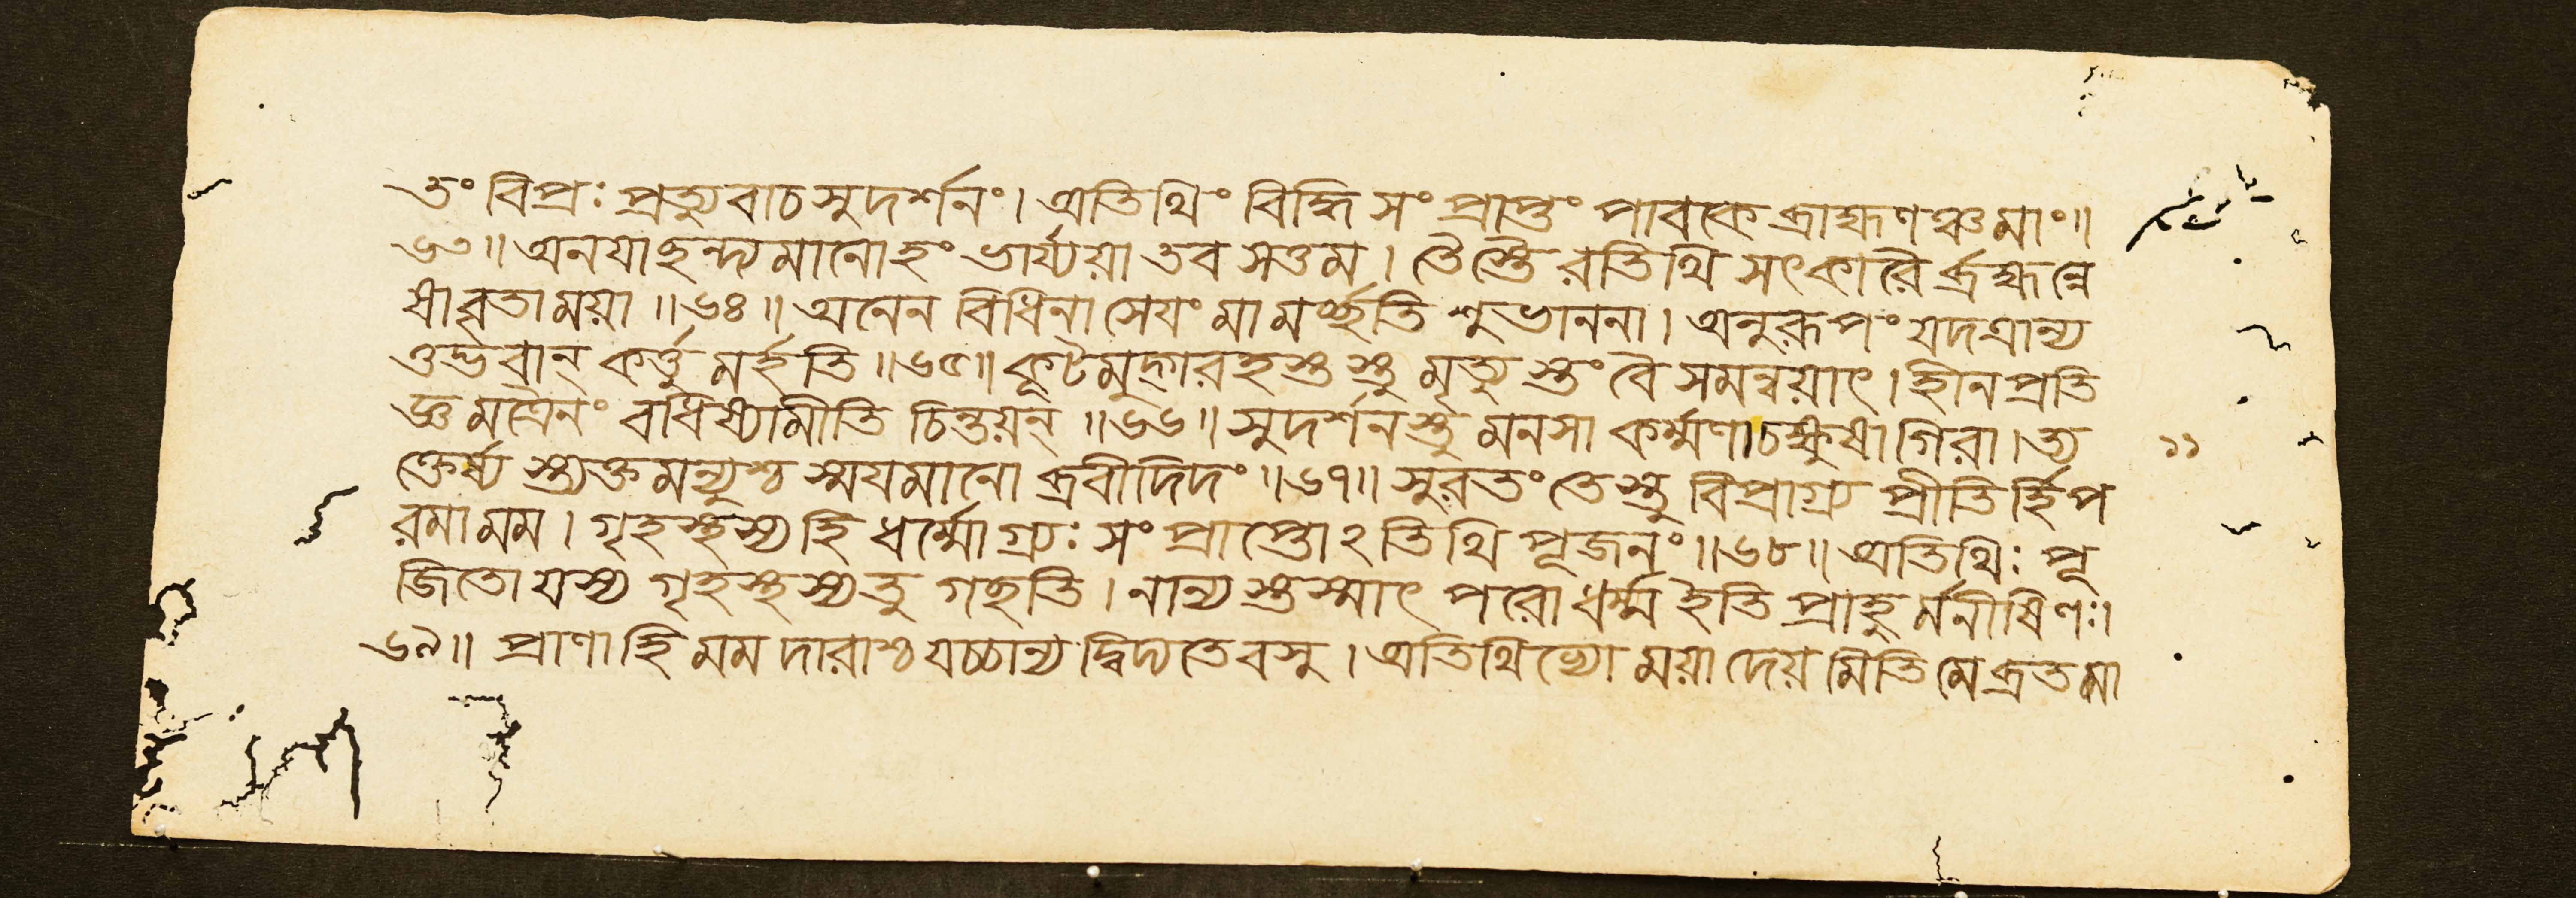 তং বিপ্রঃ প্রত্যুবাচসুদর্শনং। অতিথিং বিদ্ধি সং প্রাপ্তং পাবকে ব্রাহ্মণঞ্চমাং॥
৬৩॥ অনযাছন্দ্যমানোহং ভার্য্যয়া তব সত্তম। তৈস্তৈ রতিথি সৎকারৈ র্ব্রহ্মন্নে
ষাবৃতাময়া॥৬৪॥ অনেন বিধিনা সেযং মামর্চ্ছতি শুভাননা। অনুরূপং যদত্রান্য
ত্তদ্ভবান্ কর্ত্তুমর্হতি॥৬৫॥ কূটমুদ্গরহস্তস্তু মৃত্যুস্তং বৈ সমন্বয়াৎ। হীনপ্রতি
জ্ঞমত্রৈনং বধিষ্যামীতি চিন্তয়ন্॥৬৬॥ সুদর্শনস্তু মনসা কর্ম্মণাচক্ষুষা গিরা। ত্য
ক্তের্ষ্য স্ত্যক্তমন্যুশ্চ স্ময়মানো ব্রবীদিদং॥৬৭॥ সুরতং তেস্তু বিপ্রাগ্র্য প্রীতির্হিপ
রমামম। গৃহস্থস্য হি ধর্ম্মোগ্র্যঃ সং প্রাপ্তোঽতিথি পূজনং॥৬৮॥ অতিথিঃ পূ
জিতো যস্য গৃহস্থস্যতু গছতি। নান্য স্তস্মাৎ পরো ধর্ম্ম ইতি প্রাহু র্মনীষিণঃ।
৬৯॥ প্রাণাহি মম দারাশ্চ যচ্চান্য দ্বিদ্যতে বসু। অতিথিভ্যো ময়া দেয় মিতি মে ব্রতমা
১১